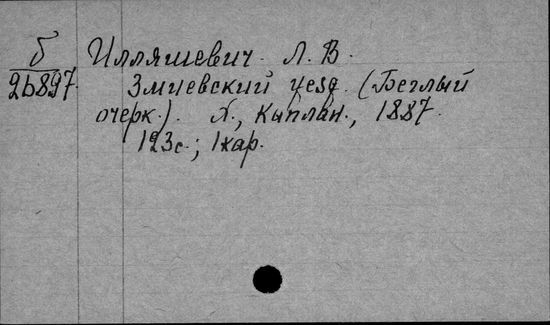 Б Илляшевич. Л. В.
26897. Змиевский уезд. (Беглый
очерк.). Х., Каплан., 1887.
123с.; 1кар.